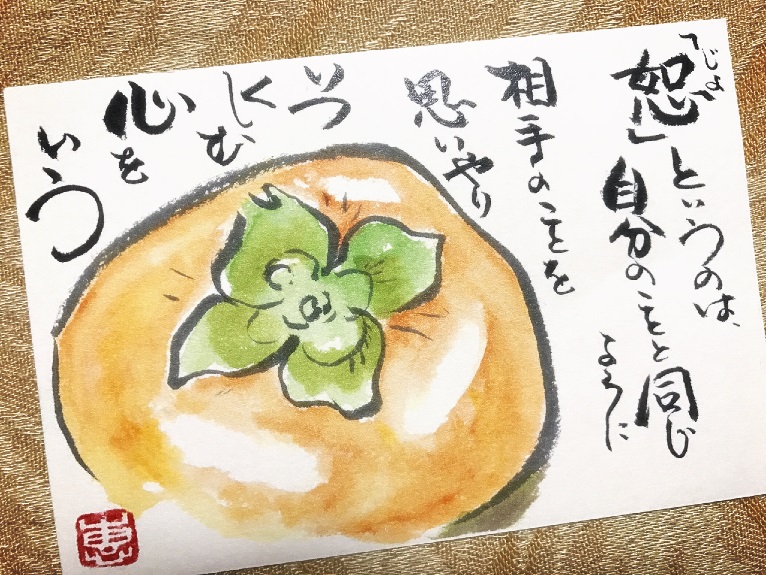 「恕」というのは、
じょ
自分のことと同じ
ように
相手のことを
思いやり
いつ
くしむ
心を
いう
恵